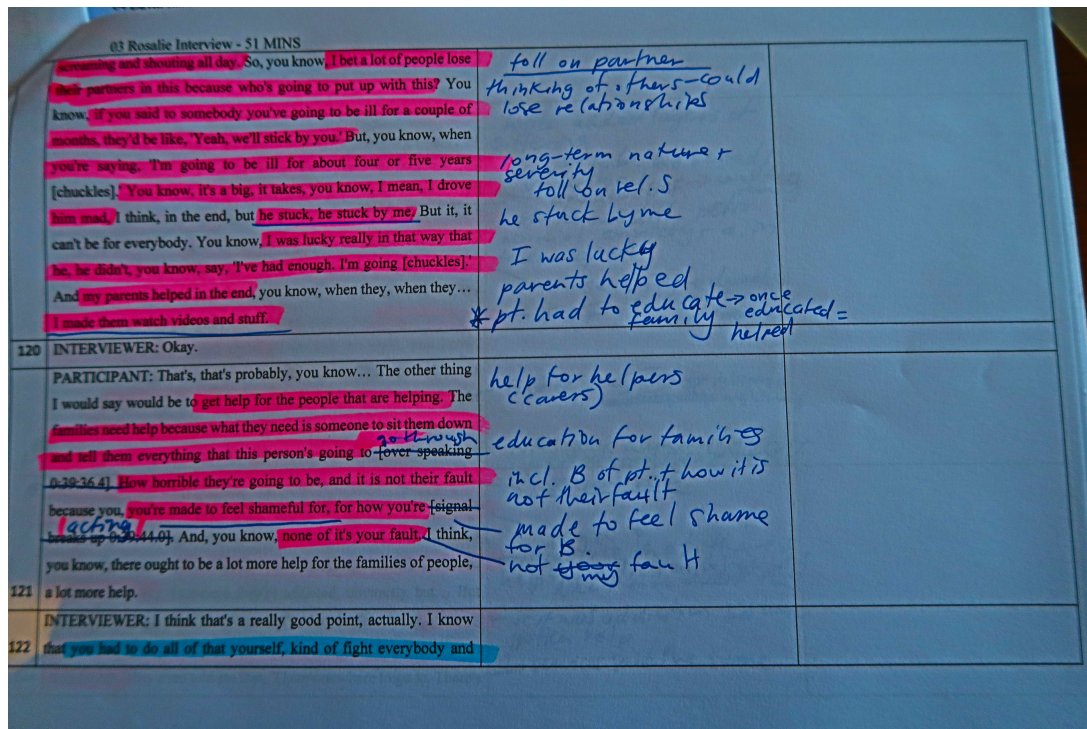 03 Rosalie Interview - 51 MINS
screaming and shouting all day. So, you know, I bet a lot of people lose
their partners in this because who's going to put up with this? You
know, if you said to somebody you've going to be ill for a couple of
months, they'd be like, 'Yeah, we'll stick by you.' But, you know, when
you're saying, 'I'm going to be ill for about four or five years
[chuckles].' You know, it's a big, it takes, you know, I mean, I drove
him mad, I think, in the end, but he stuck, he stuck by me. But it, it
can't be for everybody. You know, I was lucky really in that way that
he, he didn't, you know, say, 'I've had enough. I'm going [chuckles].'
And my parents helped in the end, you know, when they, when they…
I made them watch videos and stuff.
toll on partner
thinking of others - could
lose relationships
long-term nature +
severity
toll on rel.s
he stuck by me
I was lucky
parents helped
* pt. had to educate → once
family educated =
helped
120 INTERVIEWER: Okay.
PARTICIPANT: That's, that's probably, you know… The other thing
I would say would be to get help for the people that are helping. The
families need help because what they need is someone to sit them down
go through
and tell them everything that this person's going to [over speaking
0:39:36.4]. How horrible they're going to be, and it is not their fault
because you, you're made to feel shameful for, for how you're [signal
acting
breaks up 0:39:44.0]. And, you know, none of it's your fault. I think,
you know, there ought to be a lot more help for the families of people,
121 a lot more help.
help for helpers
(carers)
education for families
incl. B of pt. + how it is
not their fault
made to feel shame
for B.
not your fault
my
INTERVIEWER: I think that's a really good point, actually. I know
122 that you had to do all of that yourself, kind of fight everybody and